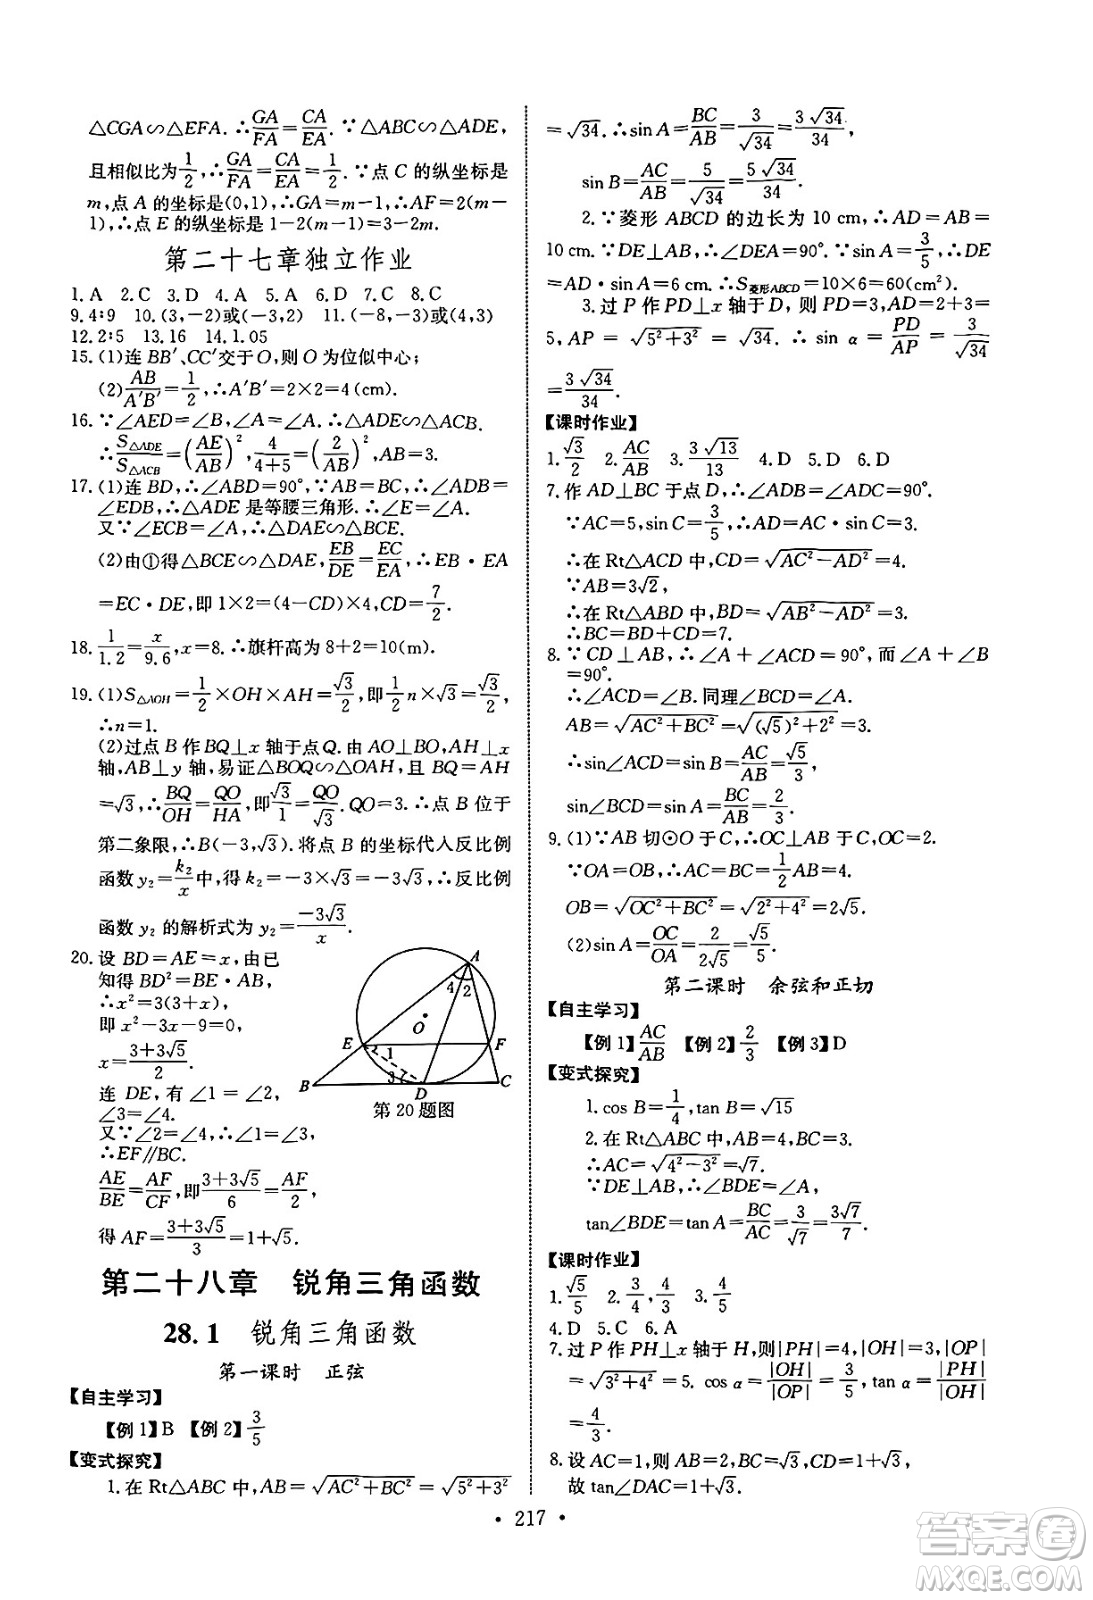 △CGA∽△EFA. ∴GA/FA=CA/EA. ∵△ABC∽△ADE,
且相似比为1/2,∴GA/FA=CA/EA=1/2.∵点 C 的纵坐标是
m,点 A 的坐标是(0,1),∴GA=m-1,∴AF=2(m-
1),∴点 E 的纵坐标是 1-2(m-1)=3-2m.
第二十七章独立作业
1. A 2. C 3. D 4. A 5. D 6. D 7. C 8. C
9. 4∶9 10. (3,-2)或(-3,2) 11. (-8,-3)或(4,3)
12. 2∶5 13. 16 14. 1.05
15. (1)连 BB′、CC′交于 O,则 O 为位似中心;
(2)AB/A′B′=1/2,∴A′B′=2×2=4(cm).
16. ∵∠AED=∠B,∠A=∠A. ∴△ADE∽△ACB.
∴S△ADE/S△ACB=(AE/AB)²,4/(4+5)=(2/AB)²,AB=3.
17. (1)连 BD,∴∠ABD=90°,∵AB=BC,∴∠ADB=
∠EDB,∴△ADE 是等腰三角形. ∴∠E=∠A.
又∵∠ECB=∠A,∴△DAE∽△BCE.
(2)由①得△BCE∽△DAE,EB/DE=EC/EA,∴EB·EA
=EC·DE,即 1×2=(4-CD)×4,CD=7/2.
18. 1/1.2=x/9.6,x=8. ∴旗杆高为 8+2=10(m).
19. (1)S△AOH=1/2×OH×AH=√3/2,即1/2n×√3=√3/2,
∴n=1.
(2)过点 B 作 BQ⊥x 轴于点Q. 由 AO⊥BO,AH⊥x
轴,AB⊥y 轴,易证△BOQ∽△OAH,且 BQ=AH
=√3,∴BQ/OH=QO/HA,即√3/1=QO/√3.QO=3.∴点 B 位于
第二象限,∴B(-3,√3).将点 B 的坐标代入反比例
函数 y₂=k₂/x中,得 k₂=-3×√3=-3√3,∴反比例
函数 y₂ 的解析式为 y₂=-3√3/x.
20. 设 BD=AE=x,由已
知得 BD²=BE·AB,
∴x²=3(3+x),
即 x²-3x-9=0,
x=(3+3√5)/2.
连 DE,有∠1=∠2,
∠3=∠4,
又∵∠2=∠4,∴∠1=∠3,
∴EF∥BC.
AE/BE=AF/CF,即(3+3√5)/6=AF/2,
得 AF=(3+3√5)/3=1+√5.
A
4 2
O
E 1 F
3
B D C
第 20 题图
第二十八章 锐角三角函数
28.1 锐角三角函数
第一课时 正弦
【自主学习】
【例 1】B 【例 2】3/5
【变式探究】
1. 在 Rt△ABC 中,AB=√(AC²+BC²)=√(5²+3²)
=√34. ∴sin A=BC/AB=3/√34=3√34/34,
sin B=AC/AB=5/√34=5√34/34.
2. ∵菱形 ABCD 的边长为 10 cm,∴AD=AB=
10 cm. ∵DE⊥AB,∴∠DEA=90°. ∵sin A=3/5,∴DE
=AD·sin A=6 cm. ∴S菱形ABCD=10×6=60(cm²).
3. 过 P 作 PD⊥x 轴于 D,则 PD=3,AD=2+3=
5,AP=√(5²+3²)=√34. ∴sin α=PD/AP=3/√34
=3√34/34.
【课时作业】
1. √3/2 2. AC/AB 3. 3√13/13 4. D 5. D 6. D
7. 作 AD⊥BC 于点 D,∴∠ADB=∠ADC=90°.
∵AC=5,sin C=3/5,∴AD=AC·sin C=3.
∴在 Rt△ACD 中,CD=√(AC²-AD²)=4.
∵AB=3√2,
∴在 Rt△ABD 中,BD=√(AB²-AD²)=3.
∴BC=BD+CD=7.
8. ∵CD⊥AB,∴∠A+∠ACD=90°,而∠A+∠B
=90°.
∴∠ACD=∠B.同理∠BCD=∠A.
AB=√(AC²+BC²)=√((√5)²+2²)=3.
∴sin∠ACD=sin B=AC/AB=√5/3,
sin∠BCD=sin A=BC/AB=2/3.
9. (1)∵AB 切⊙O 于 C,∴OC⊥AB 于 C,OC=2.
∵OA=OB,∴AC=BC=1/2AB=4.
OB=√(OC²+BC²)=√(2²+4²)=2√5.
(2)sin A=OC/OA=2/2√5=√5/5.
第二课时 余弦和正切
【自主学习】
【例 1】AC/AB 【例 2】2/3 【例 3】D
【变式探究】
1. cos B=1/4,tan B=√15
2. 在 Rt△ABC 中,AB=4,BC=3.
∴AC=√(4²-3²)=√7.
∵DE⊥AB,∴∠BDE=∠A,
tan∠BDE=tan A=BC/AC=3/√7=3√7/7.
【课时作业】
1. √5/5 2. 3/4,4/3 3. 4/5
4. D 5. C 6. A
7. 过 P 作 PH⊥x 轴于 H,则|PH|=4,|OH|=3,|OP|
=√(3²+4²)=5. cos α=|OH|/|OP|=3/5,tan α=|PH|/|OH|
=4/3.
8. 设 AC=1,则 AB=2,BC=√3,CD=1+√3,
故 tan∠DAC=1+√3.
• 217 •
答案圈
MXQE.COM